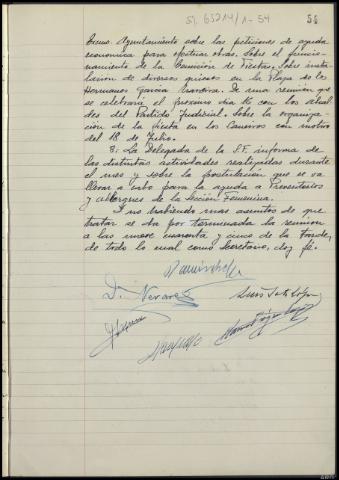 51. 65214/1-54
54
Excmo Ayuntamiento sobre las peticiones de ayuda
economica para efectuar obras. Sobre el funcio-
namiento de la Comisión de Fiestas. Sobre insta-
lacion de diversos quioscos en la Plaza de los
Hermanos García Naveira. De una reunión que
se celebrará el proximo dia 16 con los Alcal-
des del Partido Judicial. Sobre la organiza-
ción de la fiesta en los Caneiros con motivo
del 18 de Julio.
8: La Delegada de la S.F. informa de
las distintas actividades realizadas durante
el mes y sobre la postulación que se va
llevar a cabo para la ayuda a Preventorios
y Albergues de la Sección Femenina.
Y no habiendo mas asuntos de que
tratar se da por terminada la reunión
a las nueve cuarenta y cinco de la tarde,
de todo lo cual como Secretario, doy fé.
D. Nevares